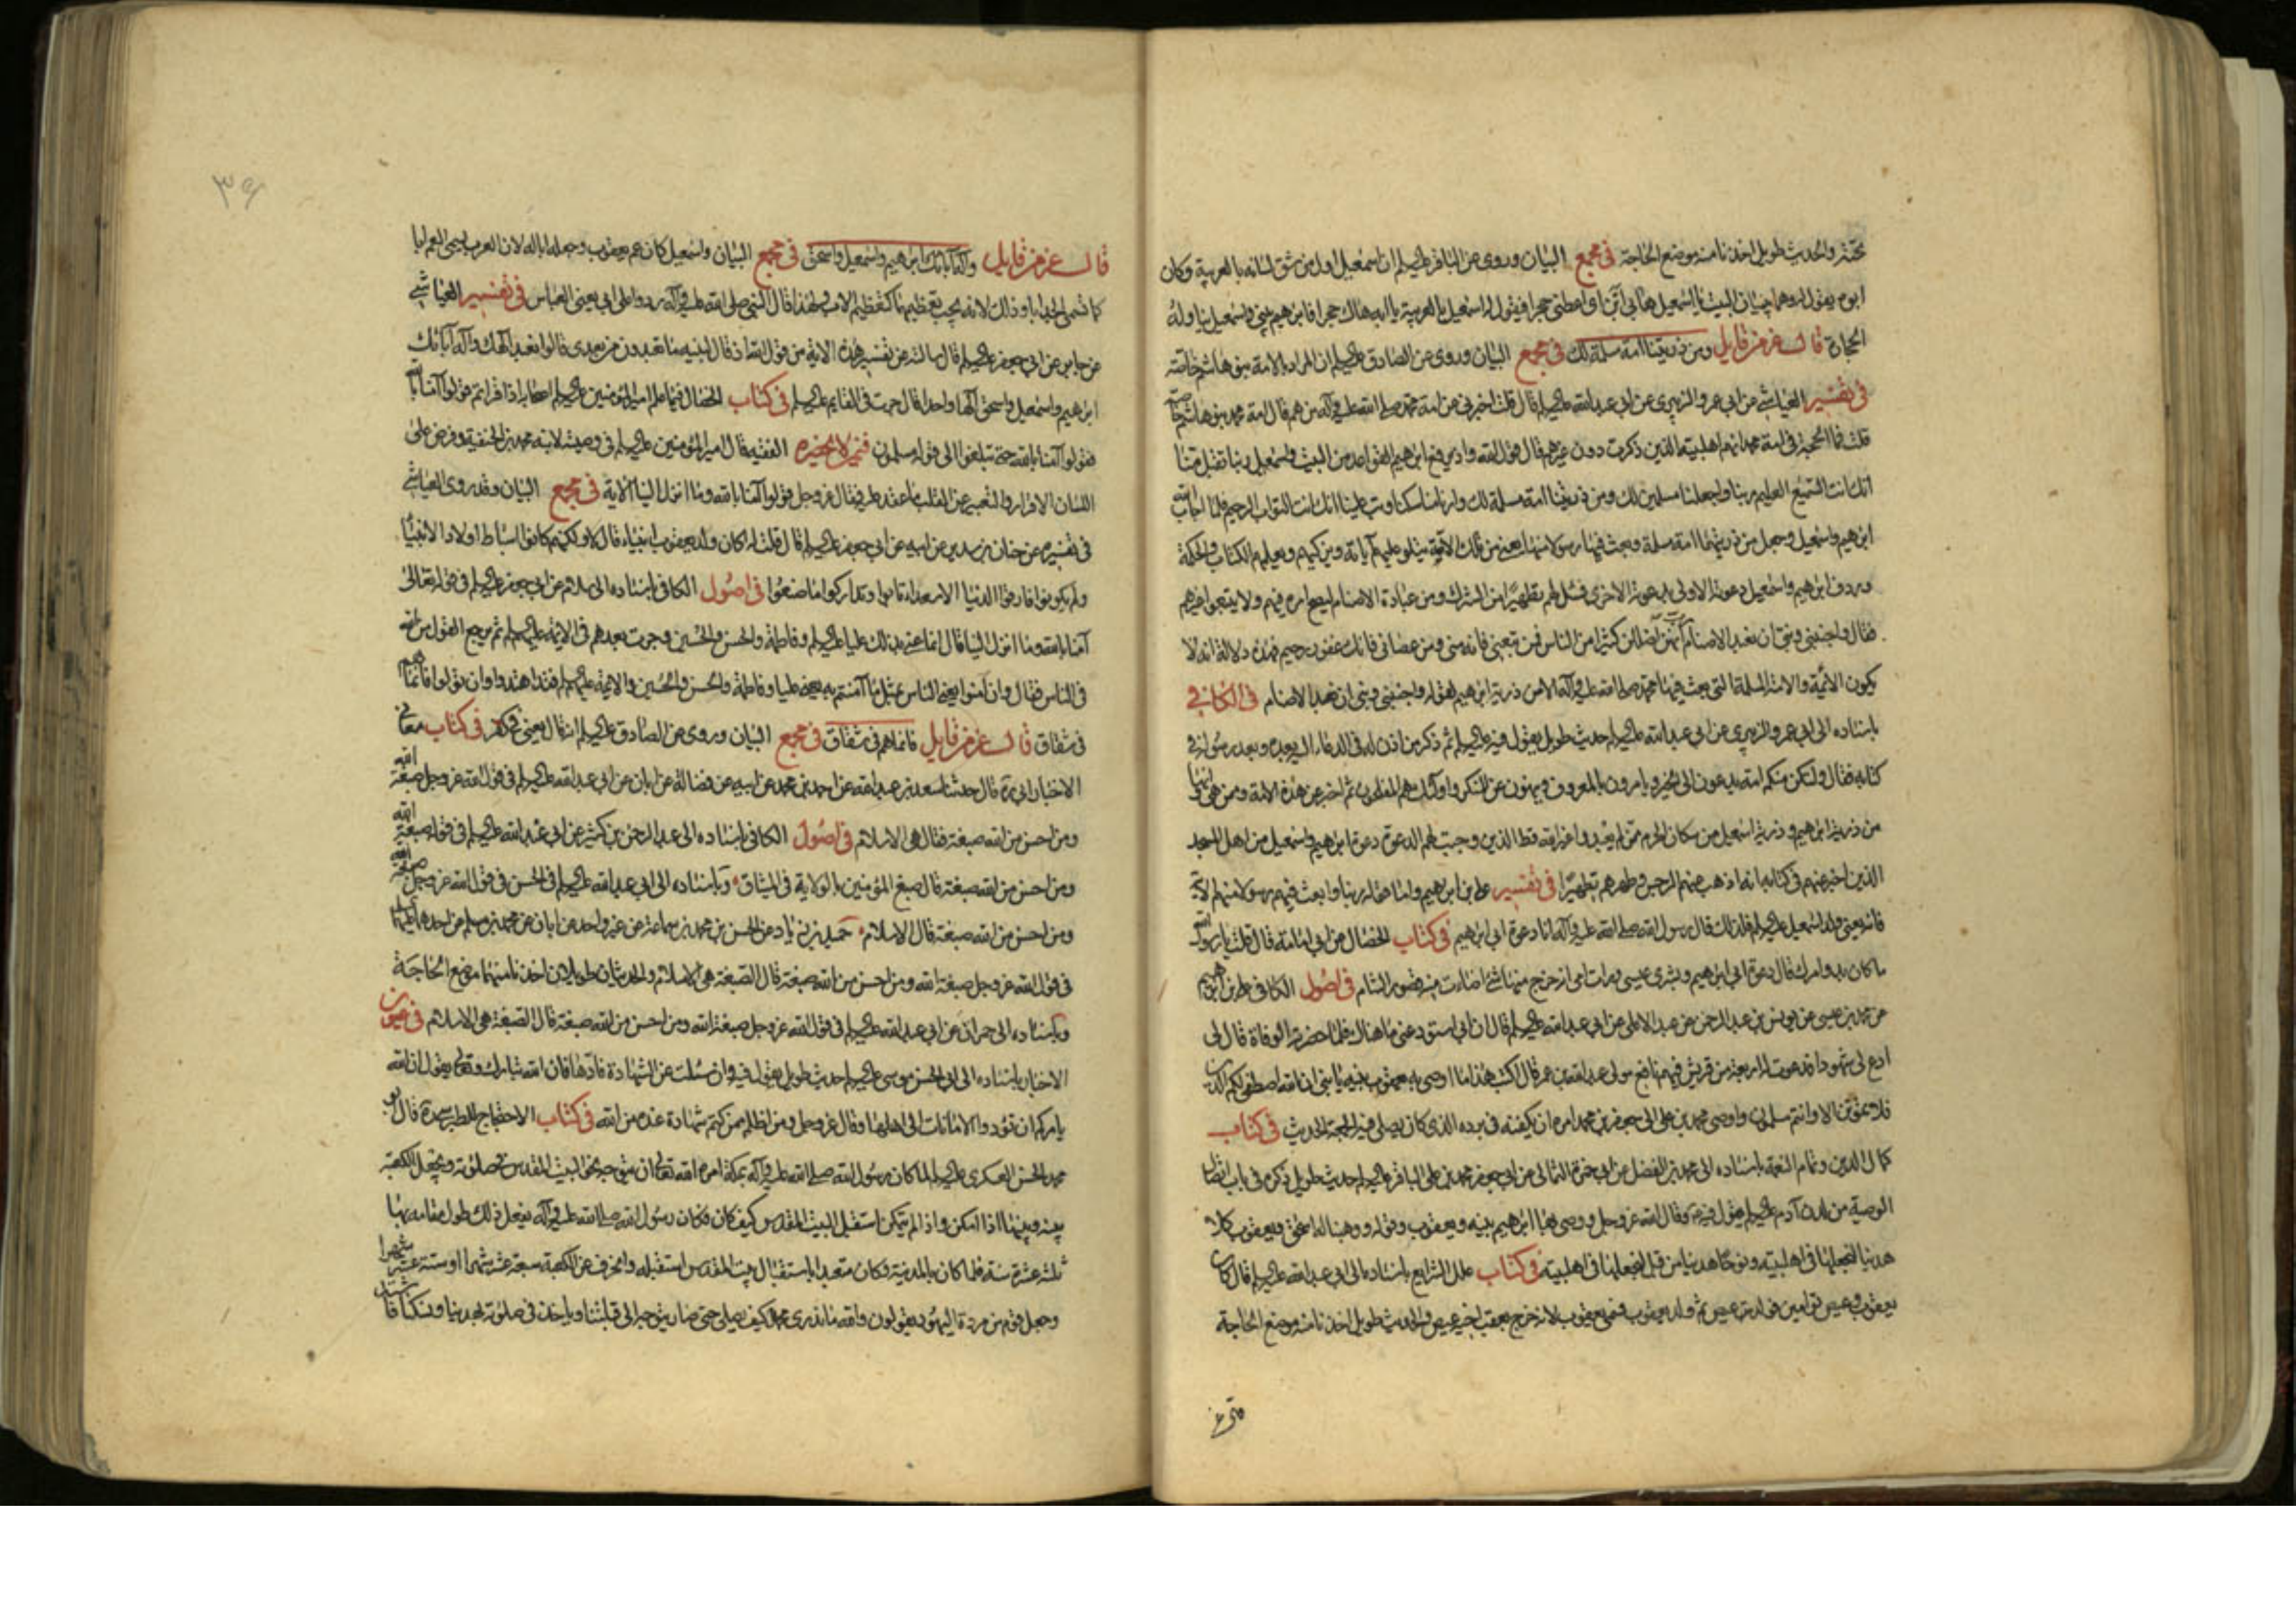 تحته والحديث طويل اخذنا منه موضع الحاجة في مجمع البيان وروى عن الباقر عليه السلم ان اسمعيل اول من شق لسانه بالعربية وكان
ابوه يقول له وهما يبنيان البيت يا اسمعيل هابي ابن اى اعطنى حجرا فيقول له اسمعيل بالعربية يا ابه هاك حجرا فابرهيم يبنى واسمعيل يناوله
الحجارة قال عز من قايل ومن ذريتنا امة مسلمة لك في مجمع البيان وروى عن الصادق عليه السلم ان المراد بالامة بنو هاشم خاصة
فى تفسير العياشى عن ابى عمرو الزبيرى عن ابى عبد الله عليه السلم قال قلت اخبرنى عن امة محمد صلى الله عليه وآله من هم قال امة محمد بنو هاشم خاصة
قلت فما الحجة فى امة محمد انهم اهل بيته الذين ذكرت دون غيرهم قال قول الله واذ يرفع ابرهيم القواعد من البيت واسمعيل ربنا تقبل منا
انك انت السميع العليم ربنا واجعلنا مسلمين لك ومن ذريتنا امة مسلمة لك وارنا مناسكنا وتب علينا انك انت التواب الرحيم فلما اجاب الله
ابرهيم واسمعيل وجعل من ذريتهما امة مسلمة وبعث فيها رسولا منها يعنى من تلك الامة يتلو عليهم آياته ويزكيهم ويعلمهم الكتاب والحكمة
وردف ابرهيم واسمعيل دعوته الاولى بدعوته الاخرى فسئل لهم تطهيرا من الشرك ومن عبادة الاصنام ليصح امره فيهم ولا يتبعوا غيرهم
فقال واجنبنى وبنى ان نعبد الاصنام رب انهن اضللن كثيرا من الناس فمن تبعنى فانه منى ومن عصانى فانك غفور رحيم فهذه دلالة انه لا
يكون الائمة والامة المسلمة التى بعث فيها محمد صلى الله عليه وآله الا من ذرية ابرهيم لقوله واجنبنى وبنى ان نعبد الاصنام فى الكافى
باسناده الى ابى عمرو الزبيرى عن ابى عبد الله عليه السلم حديث طويل يقول فيه عليه السلم ثم ذكر من اذن له فى الدعاء اليه بعده وبعد رسوله فى
كتابه فقال ولتكن منكم امة يدعون الى الخير ويامرون بالمعروف وينهون عن المنكر واولئك هم المفلحون ثم اخبر عن هذه الامة وممن هى وانها
من ذرية ابرهيم وذرية اسمعيل من سكان الحرم ممن لم يعبدوا غير الله قط الذين وجبت لهم الدعوة دعوة ابرهيم واسمعيل من اهل المسجد
الذين اخبر عنهم فى كتابه انه اذهب عنهم الرجس وطهرهم تطهيرا فى تفسير على بن ابرهيم واما قوله ربنا وابعث فيهم رسولا منهم الآية
فانه يعنى ولد اسمعيل عليه السلم فلذلك قال رسول الله صلى الله عليه وآله انا دعوة ابى ابرهيم فى كتاب الخصال عن ابى امامة قال قلت يا رسول الله
ما كان بدو امرك قال دعوة ابى ابرهيم وبشرى عيسى ورات امى انه خرج منها شئ اضاءت منه قصور الشام فى اصول الكافى على بن ابرهيم
عن محمد بن عيسى عن يونس بن عبد الرحمن عن عبد الاعلى عن ابى عبد الله عليه السلم قال ان ابى استودعنى ما هناك فلما حضرته الوفاة قال لى
ادع لى شهودا فدعوت له اربعة من قريش فيهم نافع مولى عبد الله بن عمر قال اكتب هذا ما اوصى به يعقوب بنيه يا بنى ان الله اصطفى لكم الدين
فلا تموتن الا وانتم مسلمون واوصى محمد بن على الى جعفر بن محمد امره ان يكفنه فى برده الذى كان يصلى فيه الجمعة الحديث فى كتاب
كمال الدين وتمام النعمة باسناده الى محمد بن الفضل عن ابى حمزة الثمالى عن ابى جعفر محمد بن على الباقر عليه السلم حديث طويل ذكره فى باب اتصال
الوصية من لدن آدم عليه السلم يقول فيه وقال الله عز وجل ووصى بها ابرهيم بنيه ويعقوب وقوله ووهبنا له اسحق ويعقوب كلا
هدينا لنجعلها فى اهل بيته ونوحا هدينا من قبل لنجعلها فى اهل بيته فى كتاب علل الشرايع باسناده الى ابى عبد الله عليه السلم قال كان
يعقوب وعيص توامين فولد عيص ثم ولد يعقوب فسمى يعقوب لانه خرج بعقب اخيه عيص والحديث طويل اخذنا منه موضع الحاجة
٣٩
قال عز من قايل واله آبائك ابرهيم واسمعيل واسحق فى مجمع البيان واسمعيل كان عم يعقوب وجعله ابا له لان العرب يسمى العم ابا
كما تسمى الجد ابا وذلك لانه يجب تعظيمهما كتعظيم الاب ولهذا قال النبى صلى الله عليه وآله ردوا على ابى يعنى العباس فى تفسير العياشى
عن جابر عن ابى جعفر عليه السلم قال سالته عن تفسير هذه الاية من قول الله اذ قال لبنيه ما تعبدون من بعدى قالوا نعبد الهك واله آبائك
ابرهيم واسمعيل واسحق الها واحدا قال جرت فى القايم عليه السلم فى كتاب الخصال فيما علم امير المؤمنين عليه السلم اصحابه اذا قراتم قولوا آمنا بالله
فقولوا آمنا بالله حتى تبلغوا الى قوله مسلمون فى من لا يحضره الفقيه قال امير المؤمنين عليه السلم فى وصيته لابنه محمد بن الحنفية وفرض على
اللسان الاقرار والتعبير عن القلب ما عقد عليه فقال عز وجل قولوا آمنا بالله وما انزل الينا الآية فى مجمع البيان وقد روى العياشى
فى تفسيره عن حنان بن سدير عن ابيه عن ابى جعفر عليه السلم قال قلت له اكان ولد يعقوب انبياء قال لا ولكنهم كانوا اسباطا اولاد الانبياء
ولم يكونوا فارقوا الدنيا الا سعداء تابوا وتذكروا ما صنعوا فى اصول الكافى باسناده الى سلام عن ابى جعفر عليه السلم فى قوله تعالى
آمنا بالله وما انزل الينا قال انما عنى بذلك عليا عليه السلم وفاطمة والحسن والحسين وجرت بعدهم فى الائمة عليهم السلم ثم يرجع القول من الله
فى الناس فقال فان آمنوا يعنى الناس بمثل ما آمنتم به يعنى عليا وفاطمة والحسن والحسين والائمة عليهم السلم فقد اهتدوا وان تولوا فانما هم
فى شقاق قال عز من قايل فانما هم فى شقاق فى مجمع البيان وروى عن الصادق عليه السلم انه قال يعنى فى كفر فى كتاب معانى
الاخبار ابى ره قال حدثنا سعد بن عبد الله عن احمد بن محمد عن ابيه عن فضالة عن ابان عن ابى عبد الله عليه السلم فى قول الله عز وجل صبغة الله
ومن احسن من الله صبغة فقال هى الاسلام فى اصول الكافى باسناده الى عبد الرحمن بن كثير عن ابى عبد الله عليه السلم فى قوله صبغة الله
ومن احسن من الله صبغة قال صبغ المؤمنين بالولاية فى الميثاق وباسناده الى ابى عبد الله عليه السلم فى الحسن فى قول الله عز وجل صبغة الله
ومن احسن من الله صبغة قال الاسلام حميد بن زياد عن الحسن بن محمد بن سماعة عن غير واحد عن ابان عن محمد بن مسلم عن احدهما عليهما السلم
فى قول الله عز وجل صبغة الله ومن احسن من الله صبغة قال الصبغة هى الاسلام والحديثان طويلان اخذنا منهما موضع الحاجة
وباسناده الى حمران عن ابى عبد الله عليه السلم فى قول الله عز وجل صبغة الله ومن احسن من الله صبغة قال الصبغة هى الاسلام فى عيون
الاخبار باسناده الى ابى الحسن موسى عليه السلم حديث طويل يقول فيه وان سئلت عن الشهادة فادها فان الله تبارك وتعالى يقول ان الله
يامركم ان تؤدوا الامانات الى اهلها وقال عز وجل ومن اظلم ممن كتم شهادة عنده من الله فى كتاب الاحتجاج للطبرسى ره قال ابو
محمد الحسن العسكرى عليه السلم لما كان رسول الله صلى الله عليه وآله بمكة امره الله تعالى ان يتوجه نحو البيت المقدس فى صلوته ويجعل الكعبة
بينه وبينها اذا امكن واذا لم يتمكن استقبل البيت المقدس كيف كان فكان رسول الله صلى الله عليه وآله يفعل ذلك طول مقامه بها
ثلثه عشرة سنة فلما كان بالمدينة وكان متعبدا باستقبال بيت المقدس استقبله وانحرف عن الكعبة سبعة عشر شهرا او ستة عشر شهرا
وجعل قوم من مردة اليهود يقولون والله ما ندرى محمد كيف يصلى حتى صار يتوجه الى قبلتنا وياخذ فى صلوته بهدينا ونسكنا فاشتد